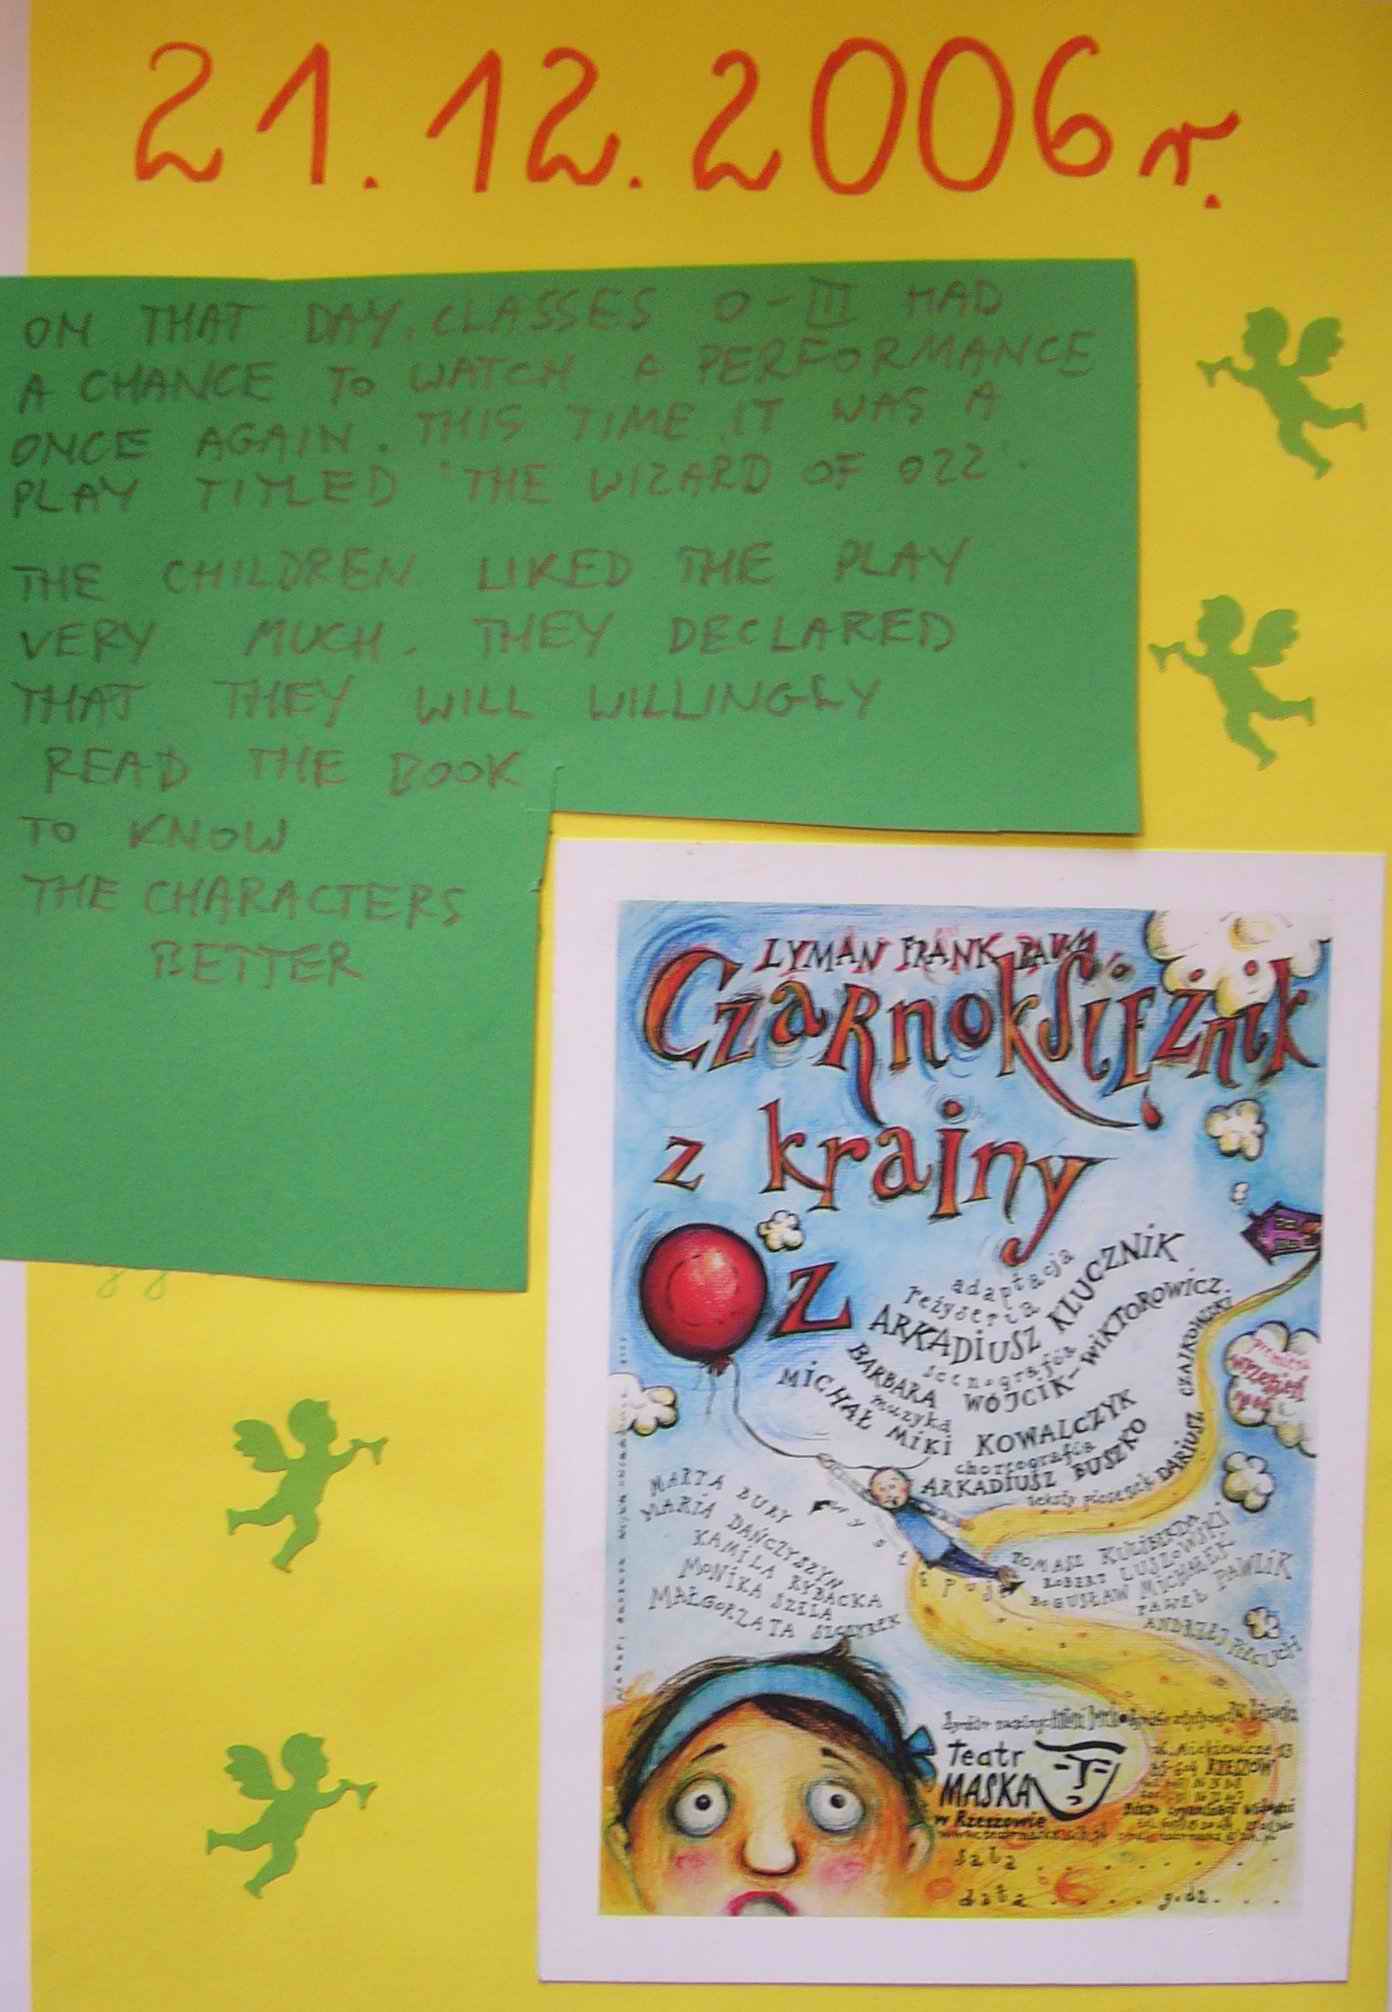 21.12.2006 r.
ON THAT DAY, CLASSES 0-III HAD
A CHANCE TO WATCH A PERFORMANCE
ONCE AGAIN. THIS TIME IT WAS A
PLAY TITLED "THE WIZARD OF OZZ".
THE CHILDREN LIKED THE PLAY
VERY MUCH. THEY DECLARED
THAT THEY WILL WILLINGLY
READ THE BOOK
TO KNOW
THE CHARACTERS
BETTER
LYMAN FRANK BAUM
CzaRnoksiężnik
z krainy
Oz
adaptacja
reżyseria
ARKADIUSZ KLUCZNIK
scenografia
BARBARA WÓJCIK-WIKTOROWICZ
muzyka
MICHAŁ MIKI KOWALCZYK
choreografia
ARKADIUSZ BUSZKO
teksty piosenek DARIUSZ CZAJKOWSKI
premiera
wrzesień
występują
MARTA BURY
MARIA DAŃCZYSZYN
KAMILA RYBACKA
MONIKA SZELA
MAŁGORZATA SZCZYREK
TOMASZ KULIBERDA
ROBERT LUSZOWSKI
BOGUSŁAW MICHAŁEK
PAWEŁ PAWLIK
ANDRZEJ PIECUCH
Teatr
MASKA
w Rzeszowie
ul. Mickiewicza 13
RZESZÓW
sala . . . . . . . .
data . . . . . godz. . . .